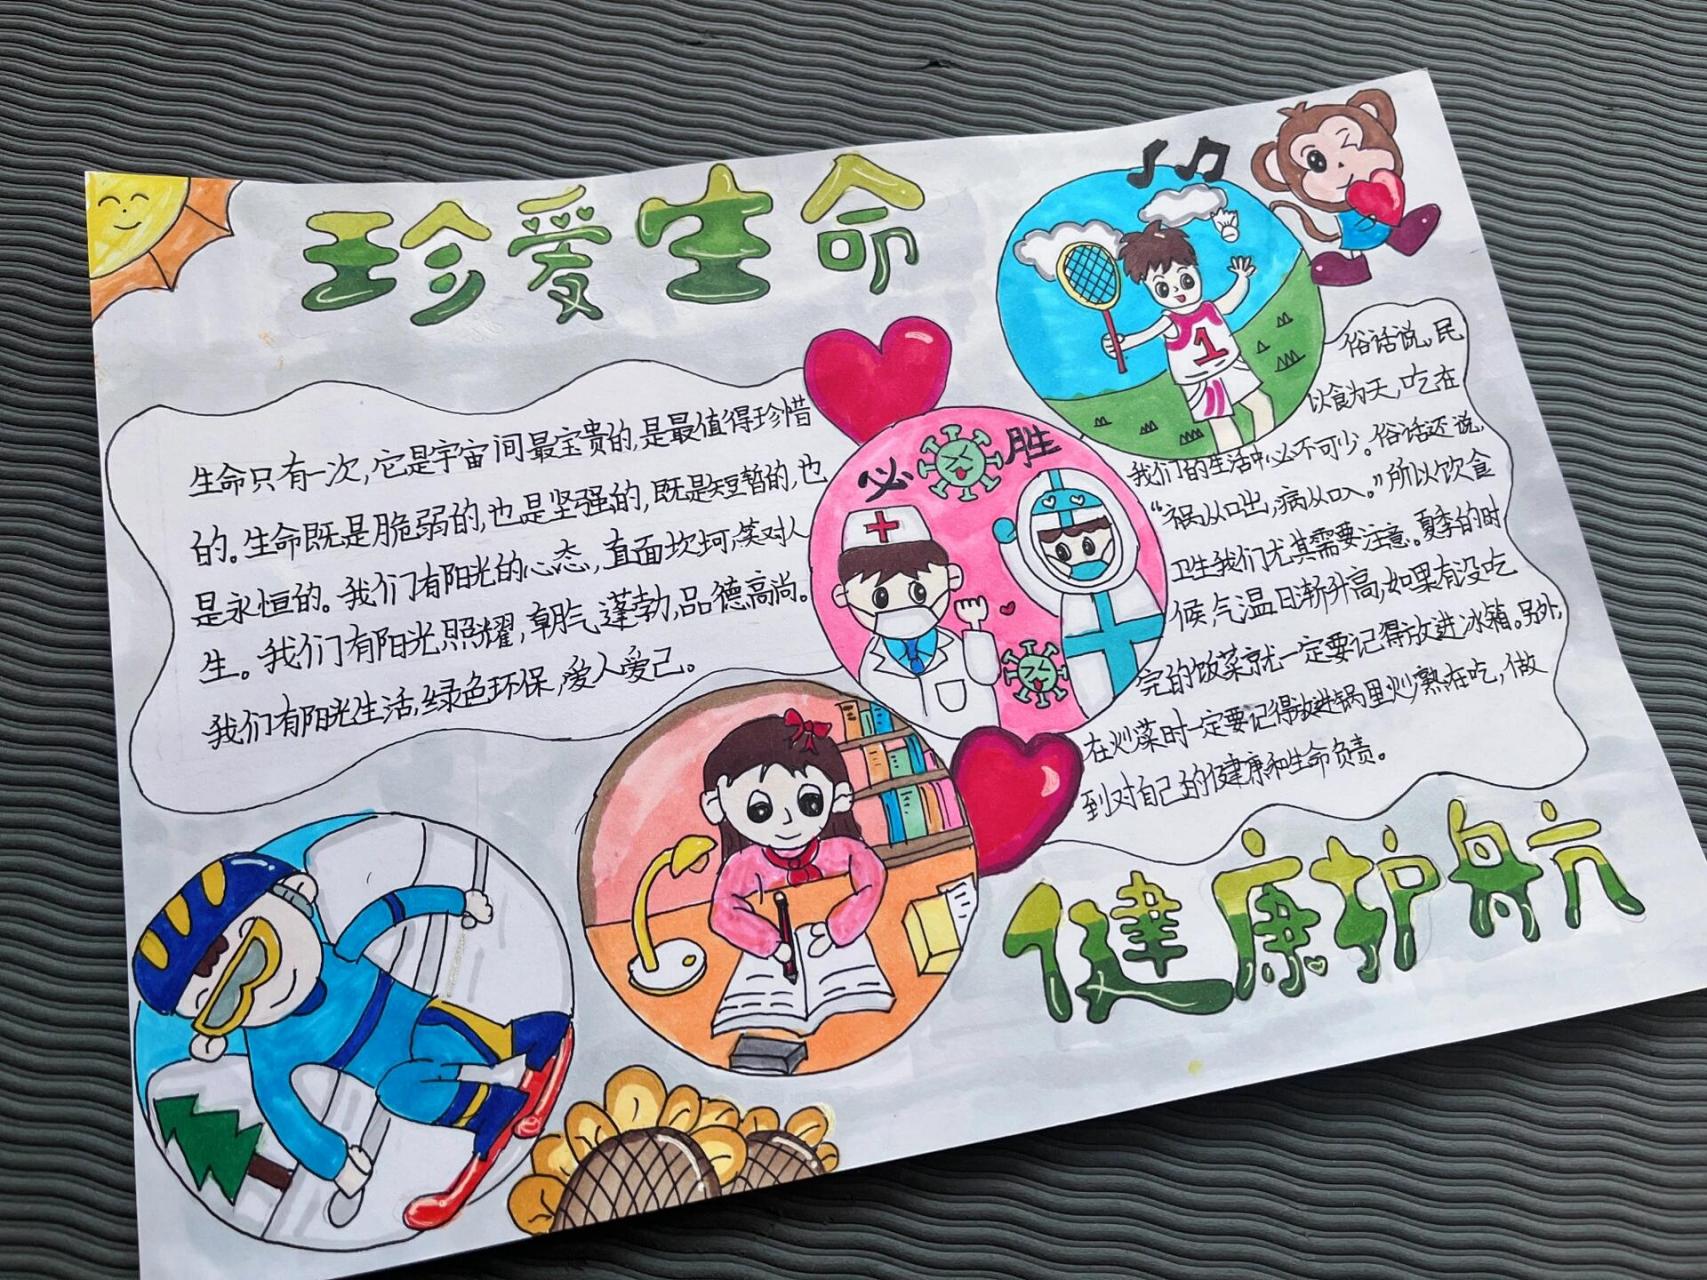 珍爱生命
生命只有一次,它是宇宙间最宝贵的,是最值得珍惜
的。生命既是脆弱的,也是坚强的,既是短暂的,也
是永恒的。我们有阳光的心态,直面坎坷,笑对人
生。我们有阳光照耀,朝气蓬勃,品德高尚。
我们有阳光生活,绿色环保,爱人爱己。
必胜
1
俗话说,民
以食为天,吃在
我们的生活中必不可少。俗话还说,
“祸从口出,病从口入。”所以饮食
卫生我们尤其需要注意。夏季的时
候,气温日渐升高,如果有没吃
完的饭菜就一定要记得放进冰箱。另外,
在炒菜时一定要记得放进锅里炒熟在吃,做
到对自己的健康和生命负责。
健康护身亢